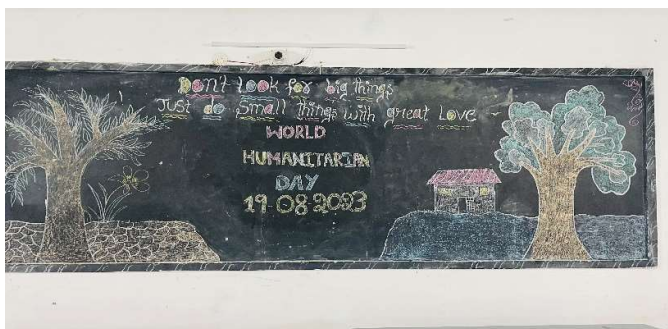 Don't Look for big things
Just do small things with great Love
WORLD
HUMANITARIAN
DAY
19-08-2023